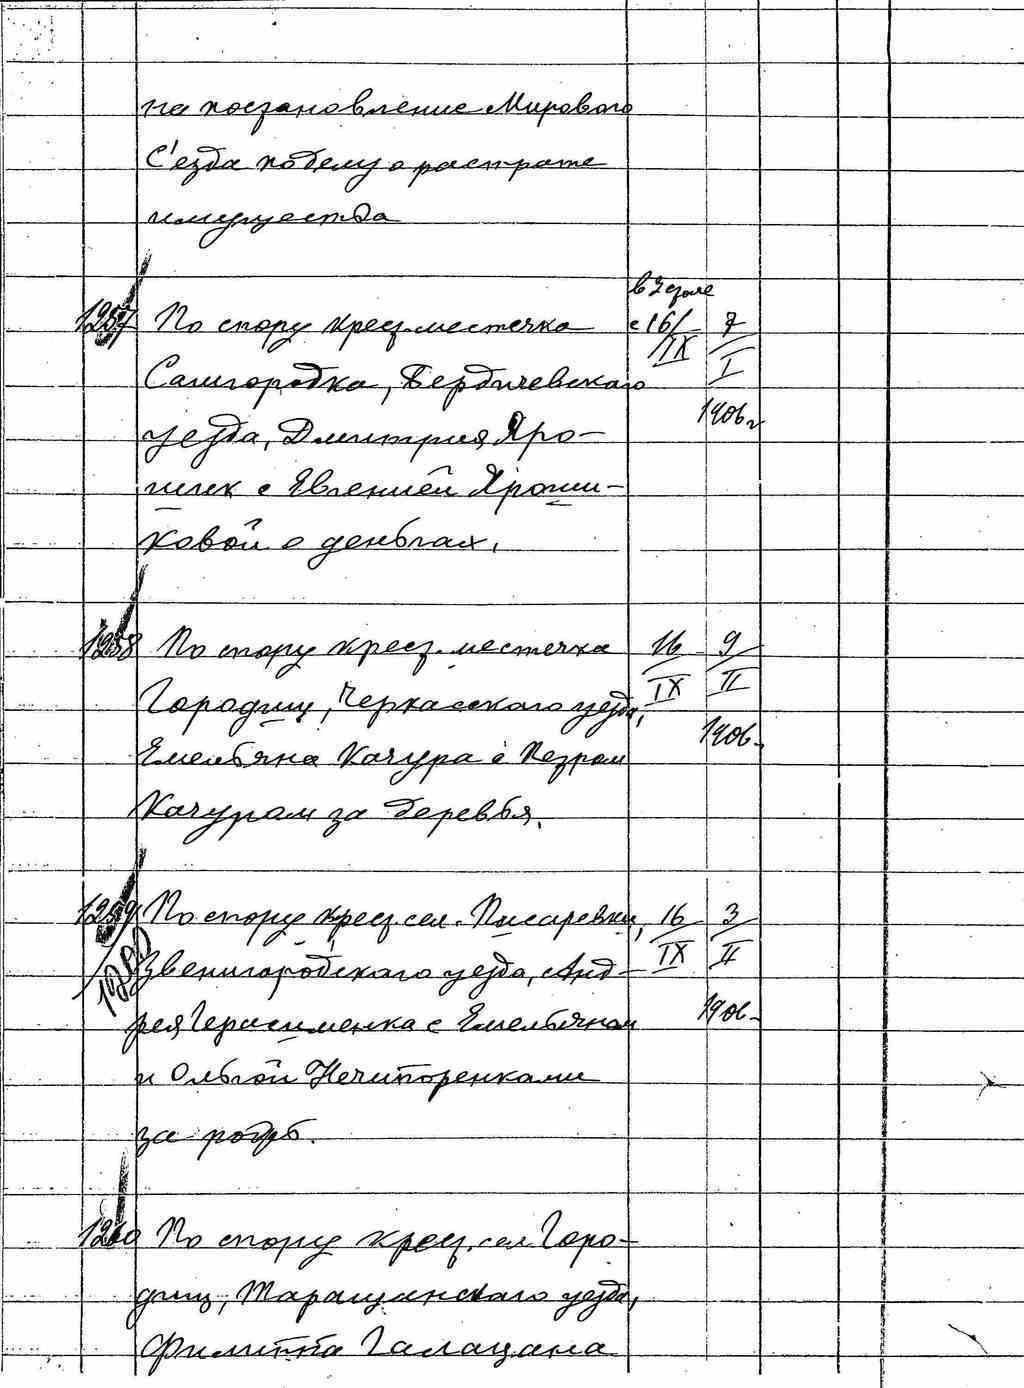 на постановление Мирового
С'езда по делу о растрате
имущества
в 2 столе
1257 По спору крест. местечка с 16/IX 7/I
Самгородка, Бердичевского 1906 г
уезда, Дмитрия Яро-
шик с Евгенией Яроши-
ковой о деньгах.
1258 По спору крест. местечка 16/IX 9/II
Городищ, Черкасского уезда, 1906
Емельяна Качура с Петром
Качуром за деревья.
1259 По спору крест. сел. Писаревки, 16/IX 3/II
Звенигородского уезда, Анд- 1906
рея Герасименка с Емельяном
и Ольгой Нечипоренками
за
1260 По спору крест. сел. Горо-
дищ, Таращанского уезда,
Филиппа Галацана